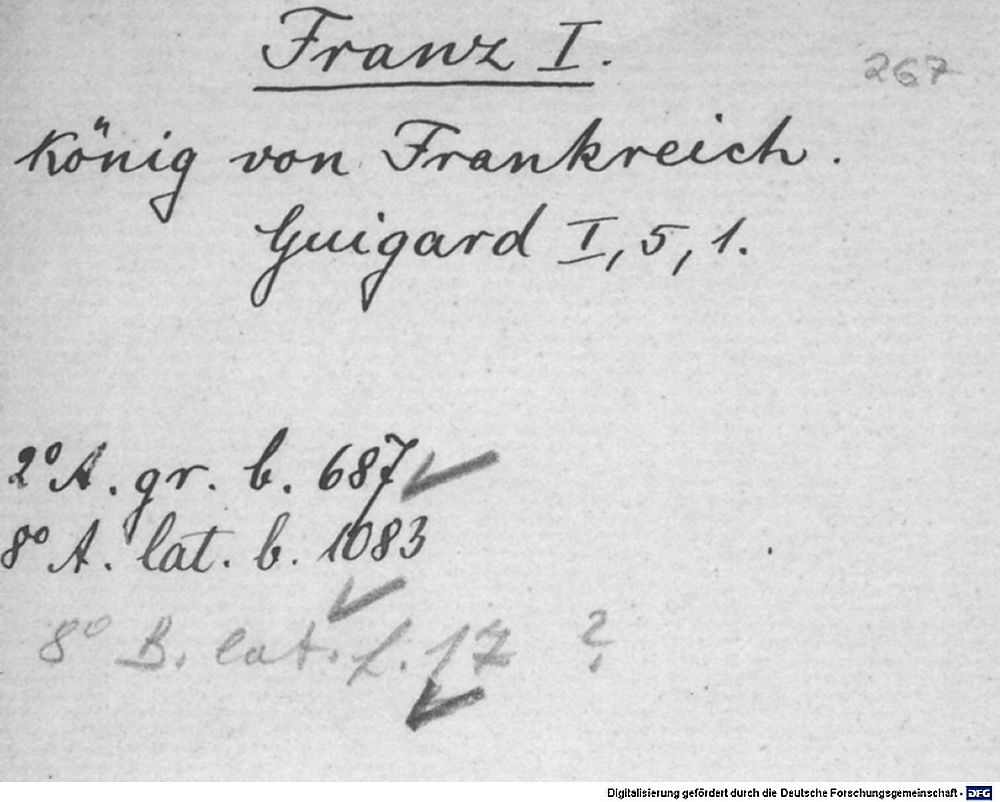 Franz I.
267
König von Frankreich.
Guigard I, 5, 1.
2° A. gr. b. 687
8° A. lat. b. 1083
8° B. lat. f. 17 ?
Digitalisierung gefördert durch die Deutsche Forschungsgemeinschaft - DFG